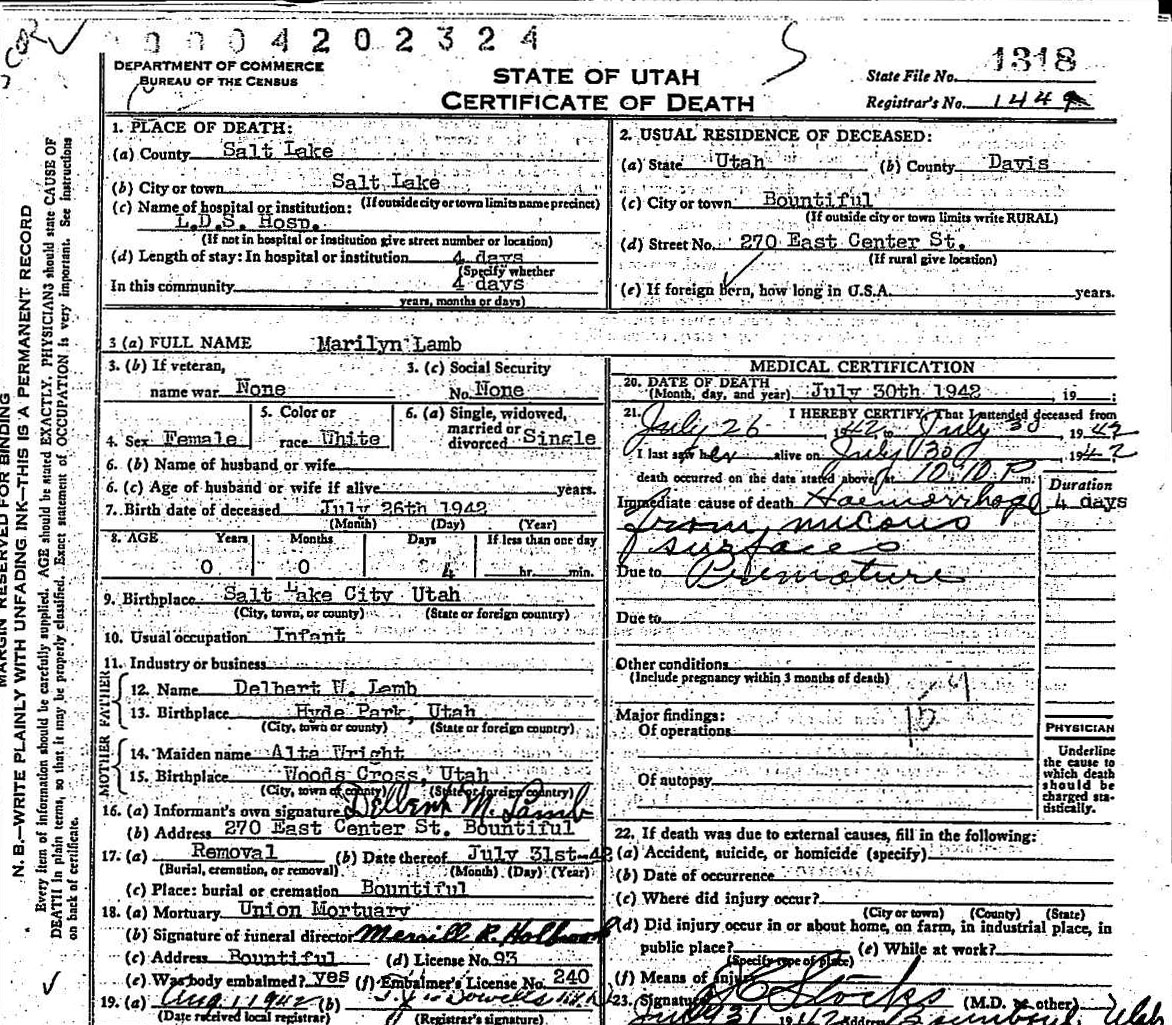 COR ✓
0 0 0 4 2 0 2 3 2 4
DEPARTMENT OF COMMERCE
BUREAU OF THE CENSUS
STATE OF UTAH
CERTIFICATE OF DEATH
State File No. 1318
Registrar's No. 1449
MARGIN RESERVED FOR BINDING
N. B.—WRITE PLAINLY WITH UNFADING INK—THIS IS A PERMANENT RECORD
Every item of information should be carefully supplied. AGE should be stated EXACTLY. PHYSICIANS should state CAUSE OF
DEATH in plain terms, so that it may be properly classified. Exact statement of OCCUPATION is very important. See instructions
on back of certificate.
1. PLACE OF DEATH:
(a) County Salt Lake
(b) City or town Salt Lake
(If outside city or town limits name precinct)
(c) Name of hospital or institution:
L.D.S. Hosp.
(If not in hospital or institution give street number or location)
(d) Length of stay: In hospital or institution 4 days
(Specify whether
In this community 4 days
years, months or days)
2. USUAL RESIDENCE OF DECEASED:
(a) State Utah (b) County Davis
(c) City or town Bountiful
(If outside city or town limits write RURAL)
(d) Street No. 270 East Center St.
(If rural give location)
(e) If foreign born, how long in U.S.A. years.
3 (a) FULL NAME Marilyn Lamb
3. (b) If veteran,
name war None
3. (c) Social Security
No. None
4. Sex Female
5. Color or
race White
6. (a) Single, widowed,
married or
divorced Single
6. (b) Name of husband or wife
6. (c) Age of husband or wife if alive years.
7. Birth date of deceased July 26th 1942
(Month) (Day) (Year)
8. AGE Years Months Days If less than one day
0 0 4 hr. min.
9. Birthplace Salt Lake City Utah
(City, town, or county) (State or foreign country)
10. Usual occupation Infant
11. Industry or business
FATHER
12. Name Delbert W. Lamb
13. Birthplace Hyde Park, Utah
(City, town or county) (State or foreign country)
MOTHER
14. Maiden name Alta Wright
15. Birthplace Woods Cross, Utah
(City, town of county) (State or foreign country)
16. (a) Informant's own signature Delbert M. Lamb
(b) Address 270 East Center St. Bountiful
17. (a) Removal (b) Date thereof July 31st-42
(Burial, cremation, or removal) (Month) (Day) (Year)
(c) Place: burial or cremation Bountiful
18. (a) Mortuary Union Mortuary
(b) Signature of funeral director Merrill R. Holbrook
(c) Address Bountiful (d) License No. 93
(e) Was body embalmed? yes (f) Embalmer's License No. 240
19. (a) Aug 1 1942 (b)
(Date received local registrar) (Registrar's signature)
MEDICAL CERTIFICATION
20. DATE OF DEATH
(Month, day, and year) July 30th 1942, 19
21. I HEREBY CERTIFY, That I attended deceased from
July 26 1942 to July 30 1942
I last saw her alive on July 30 1942
death occurred on the date stated above, at 10:10 P m.
Duration
Immediate cause of death Haemorrhage 4 days
from mucous
surfaces
Due to Premature
Due to
Other conditions
(Include pregnancy within 3 months of death)
Major findings:
Of operations
Of autopsy
PHYSICIAN
Underline
the cause to
which death
should be
charged sta-
tistically.
22. If death was due to external causes, fill in the following:
(a) Accident, suicide, or homicide (specify)
(b) Date of occurrence
(c) Where did injury occur?
(City or town) (County) (State)
(d) Did injury occur in or about home, on farm, in industrial place, in
public place? (e) While at work?
(Specify type of place)
(f) Means of injury
23. Signature Stocks (M.D. or other)
July 31 1942 Address Bountiful, Utah